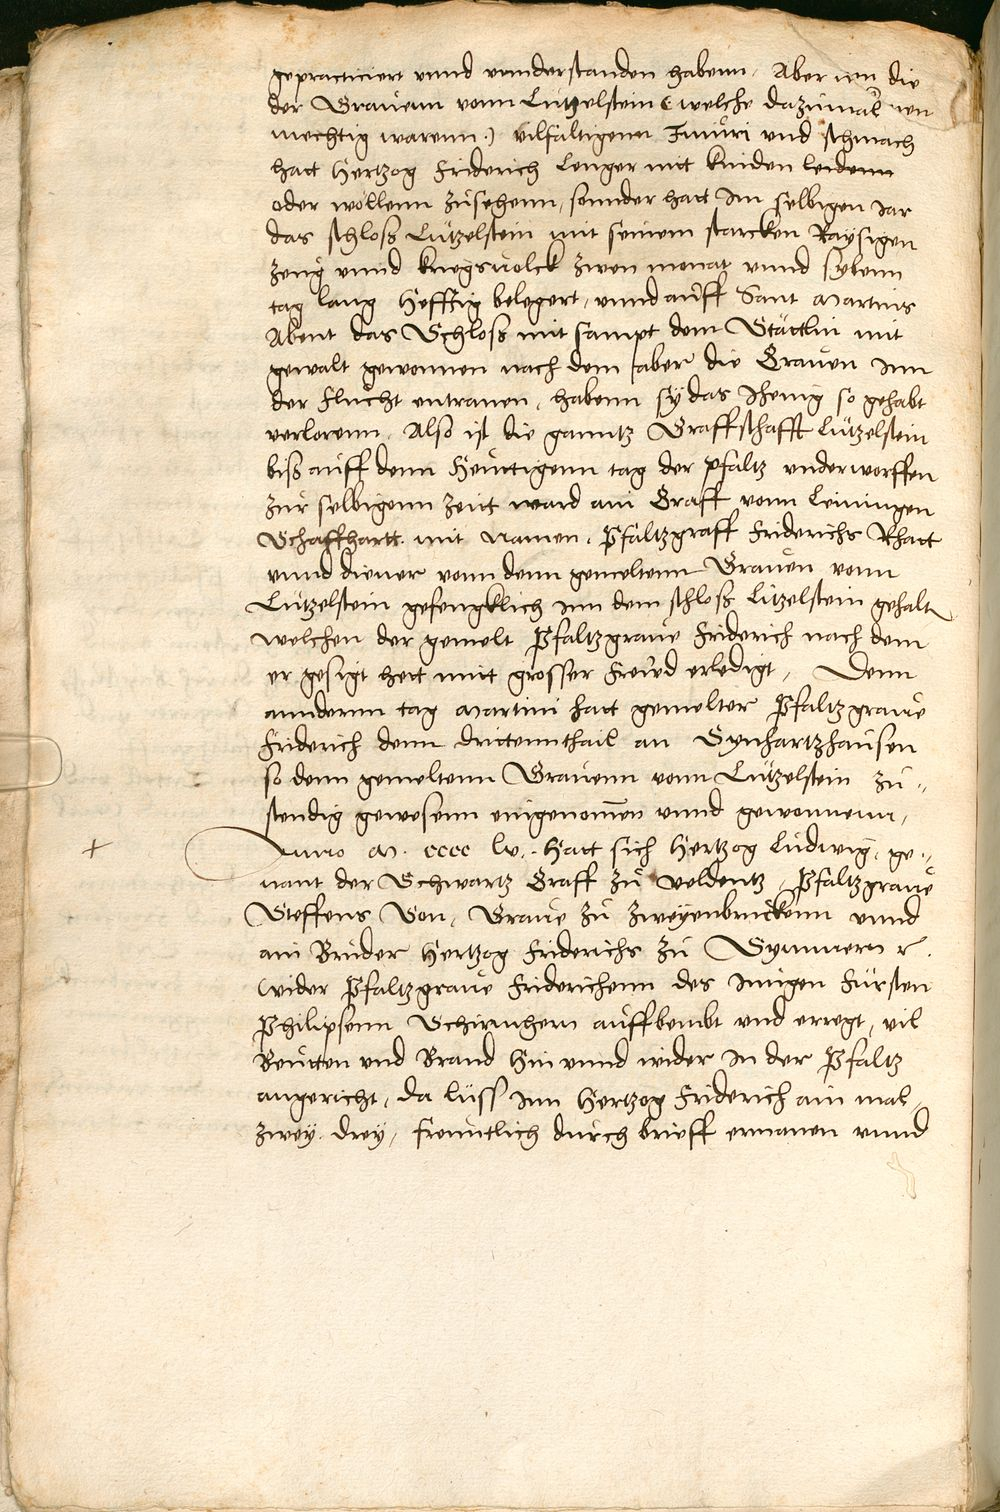 gepracticiert vnnd vnnderstanden habenn, Aber nen die
der Grauenn vonn Lutzelstein (welche dazumal nen
mechtig warenn) vilfaltigenn Iniuri vnd schmach
hatt Hertzog Friderich lenger nitt kinden leidenn
oder wöllenn zusehenn, sonnder hatt Im selbigen Jar
das schloß Lützelstein mit seinem starcken Raysigen
zeug vnnd kriegsuolck zwen monat vnnd sybenn
tag lang hefftig belegert, vnnd auff Sant Martins
Abent das Schloß mit sampt dem Stättlin mit
gewalt gewonnen nach dem aber die Grauen Inn
der flucht entranen, habenn sy das Jhenig so gehabt
verlorenn. Also ist die ganntz Graffschafft Lützelstein
biß auff denn heuttigenn tag der Pfaltz vnderworffen
zur selbigenn zeit ward ain Graff vonn Leiningen
Schaffhartt mit namen, Pfaltzgraff Friderichs Rhatt
vnnd diener vonn denn gemeltenn Grauen vonn
Lützelstein gefengklich Inn dem schloß Litzelstein gehalt
welchen der gemelt Pfaltzgraue Friderich nach dem
er gesigt hett mitt grosser freud erledigt, Denn
anndernn tag Martini hatt gemelter Pfaltzgraue
Friderich denn drittenthail an Synhartzhausen
so denn gemeltenn Grauenn vonn Lützelstein zu-
stendig gewesenn eingenomen vnnd gewonnenn,
Anno M. cccc lv. Hatt sich Hertzog Ludwig, ge-
nant der Schwartz Graff zu Veldentz, Pfaltzgraue
Steffens Son, Graue zu Zweyenbruckenn vnnd
ain Bruder Hertzog Friderichs zu Symmern r.
wider Pfaltzgraue Friderichenn des Jungen Fürsten
Philipsenn Schirmhern auffbembt vnd erregt, vil
Beutten vnd Brand hin vnnd wider In der Pfaltz
angericht, da lüss Inn Hertzog Friderich ain mal,
zwey, drey, freuntlich durch brieff ermanen vnnd